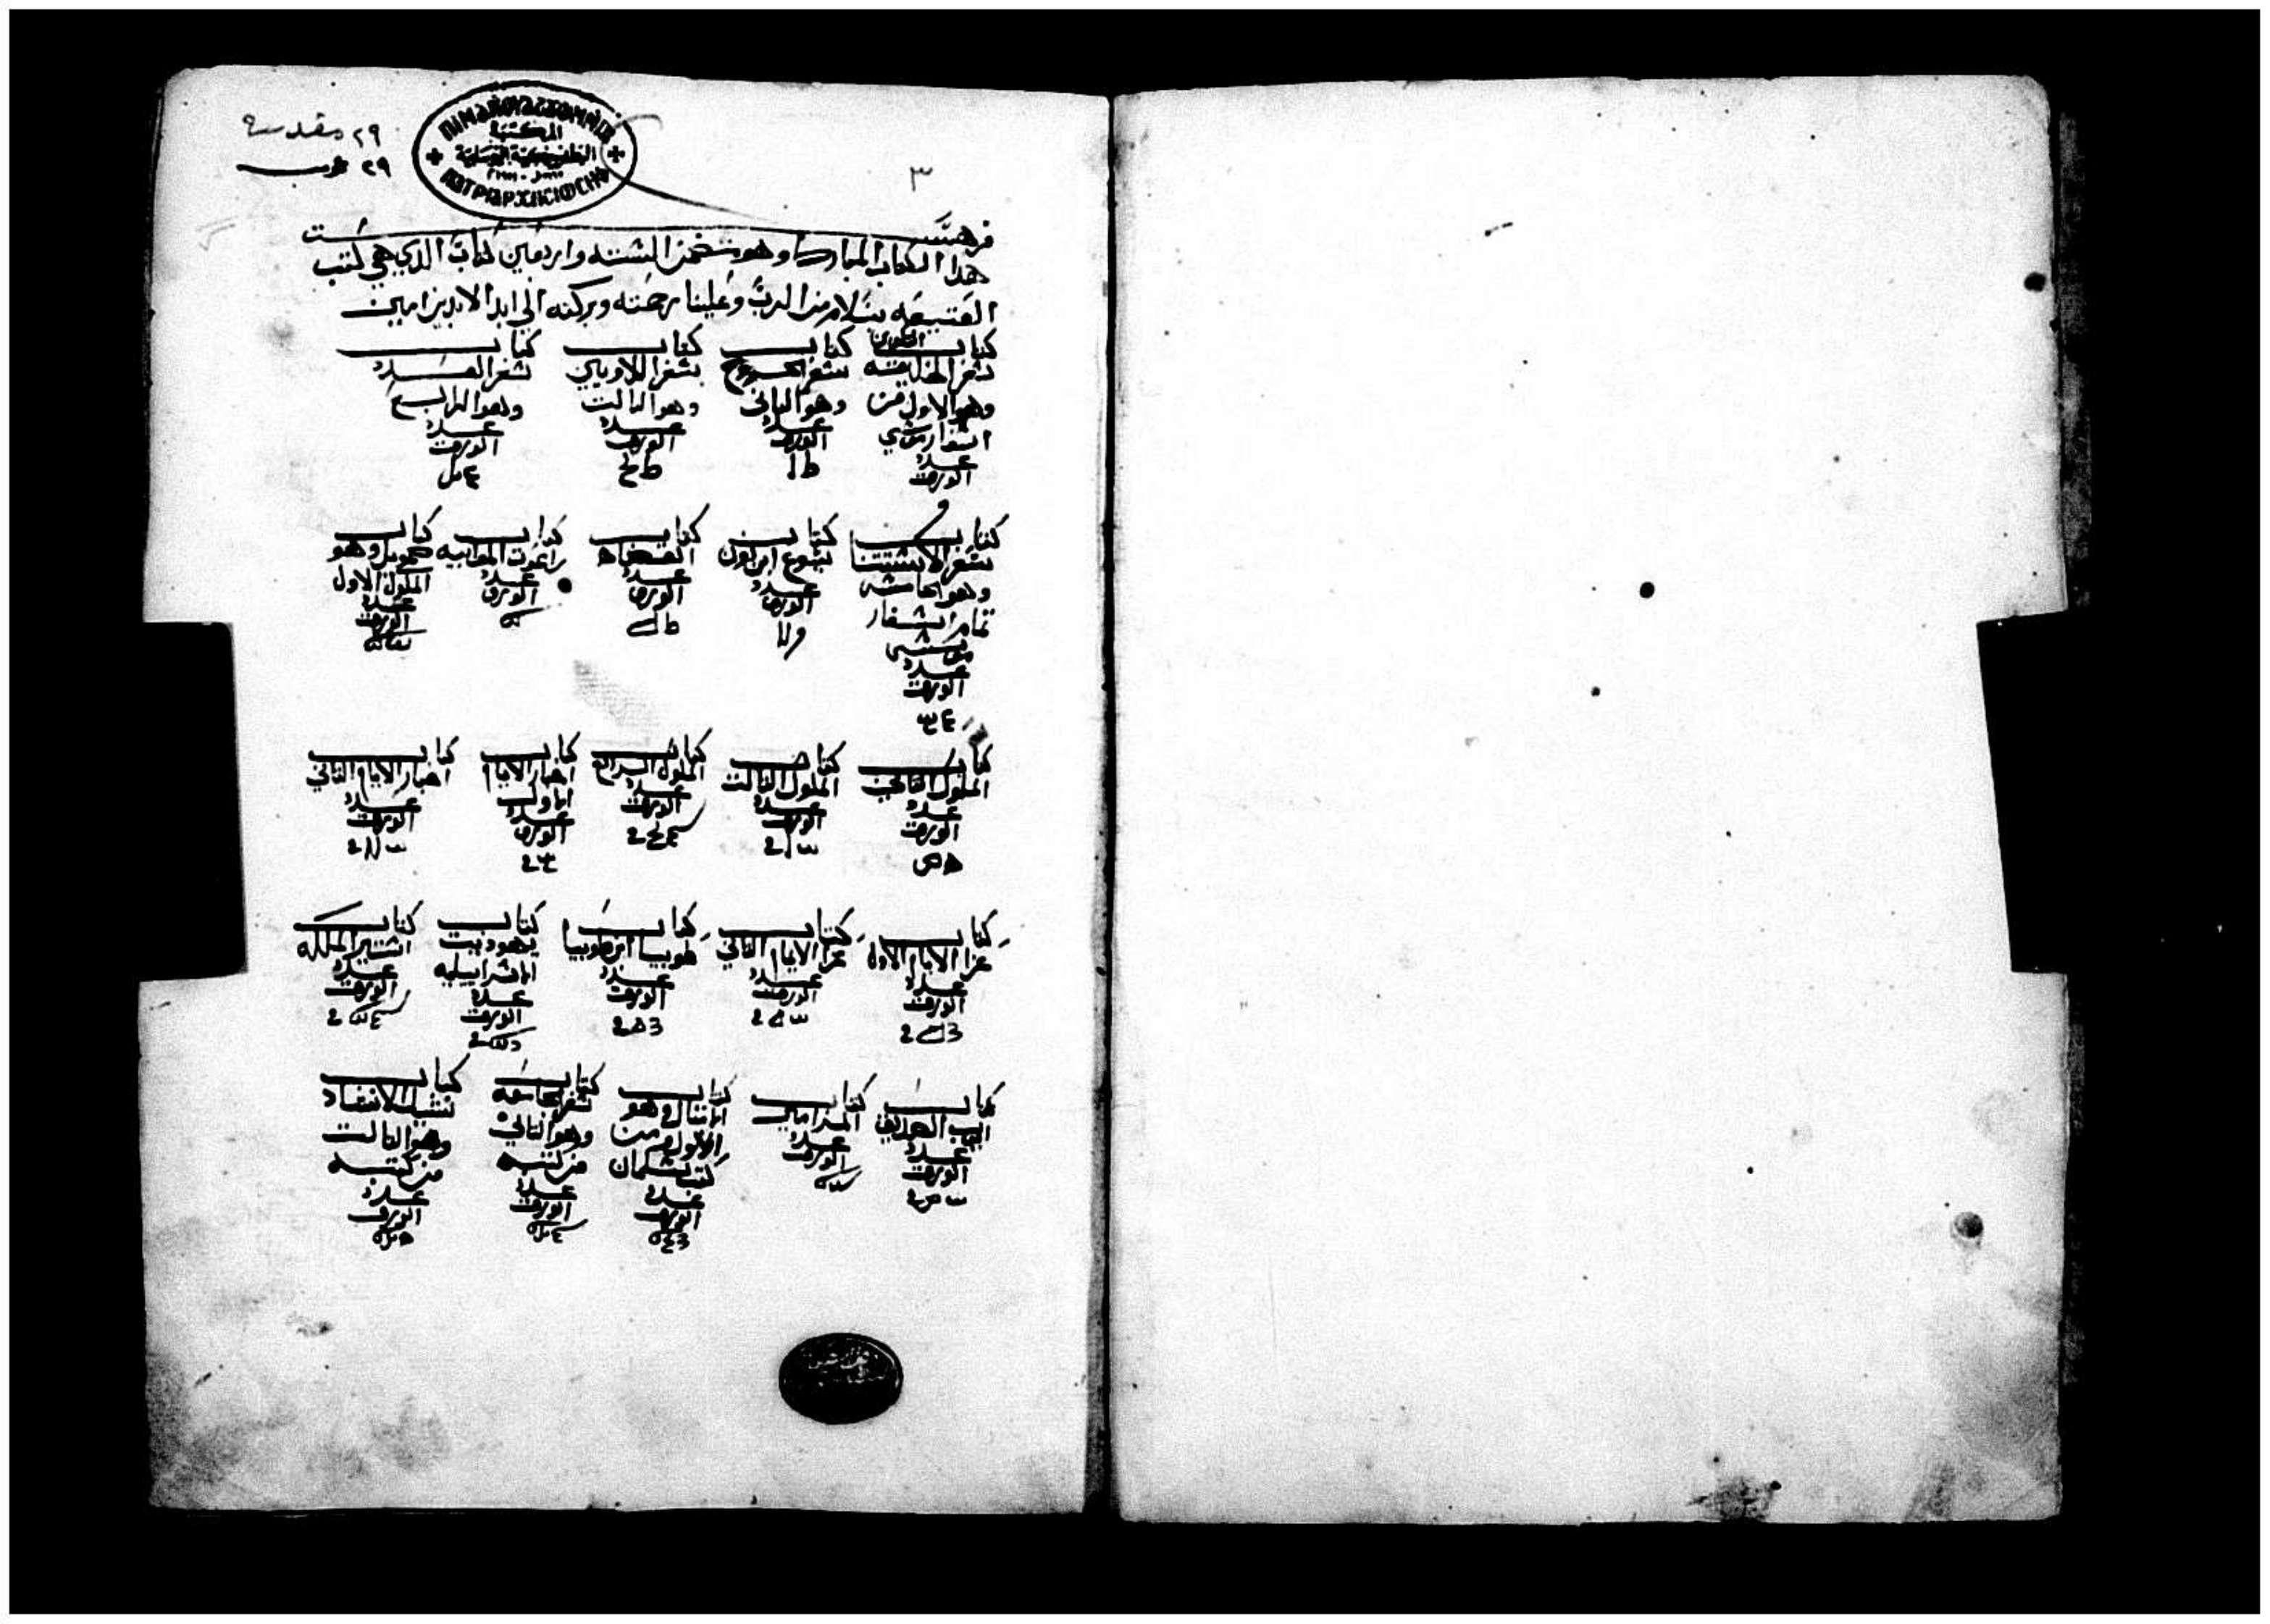 ٢٩ مقدسة
٢٩ عرب
المكتبة
٣
فهرست
هدا الكتاب المبارك وهو يتضمن السته واربعين كتاب الدي هي كتب
العتيقه بسلام من الرب وعلينا رحمته وبركته الي ابد الابدين امين
كتاب
التكوين
سفر الخليقه
وهو الاول من
اسفار موسي
عدد
الورقة
كتاب
سفر الخروج
وهو التاني
عدد
الورقة
كتاب
سفر اللاويين
وهو التالت
عدد
الورقة
كتاب
سفر العدد
وهو الرابع
عدد
الورقة
كتاب
سفر الاستتنا
وهو خامسه
تمام اسفار
موسى
عدد
الورقة
كتاب
يشوع ابن نون
عدد
الورقة
كتاب
القضاه
عدد
الورقة
كتاب
راعوت الموابيه
عدد
الورقة
كتاب
صمويل وهو
الملوك الاول
عدد
الورقة
كتاب
الملوك التاني
عدد
الورقة
كتاب
الملوك التالت
عدد
الورقة
كتاب
الملوك الرابع
عدد
الورقة
كتاب
اخبار الايام
الاول
عدد
الورقة
كتاب
اخبار الايام التاني
عدد
الورقة
كتاب
عزرا الامام الاول
عدد
الورقة
كتاب
عزرا الامام التاني
عدد
الورقة
كتاب
طوبيا ابن طوبيا
عدد
الورقة
كتاب
يهوديت
الاسراييليه
عدد
الورقة
كتاب
استير الملكه
عدد
الورقة
كتاب
ايوب الصديق
عدد
الورقة
كتاب
المزامير
عدد
الورقة
كتاب
الامتال وهو
الاول من
كتب سليمان
عدد
الورقة
كتاب
سفر الجامعه
وهو التاني
من كتبه
عدد
الورقة
كتاب
نشيد الانشاد
وهو التالت
من كتبه
عدد
الورقة